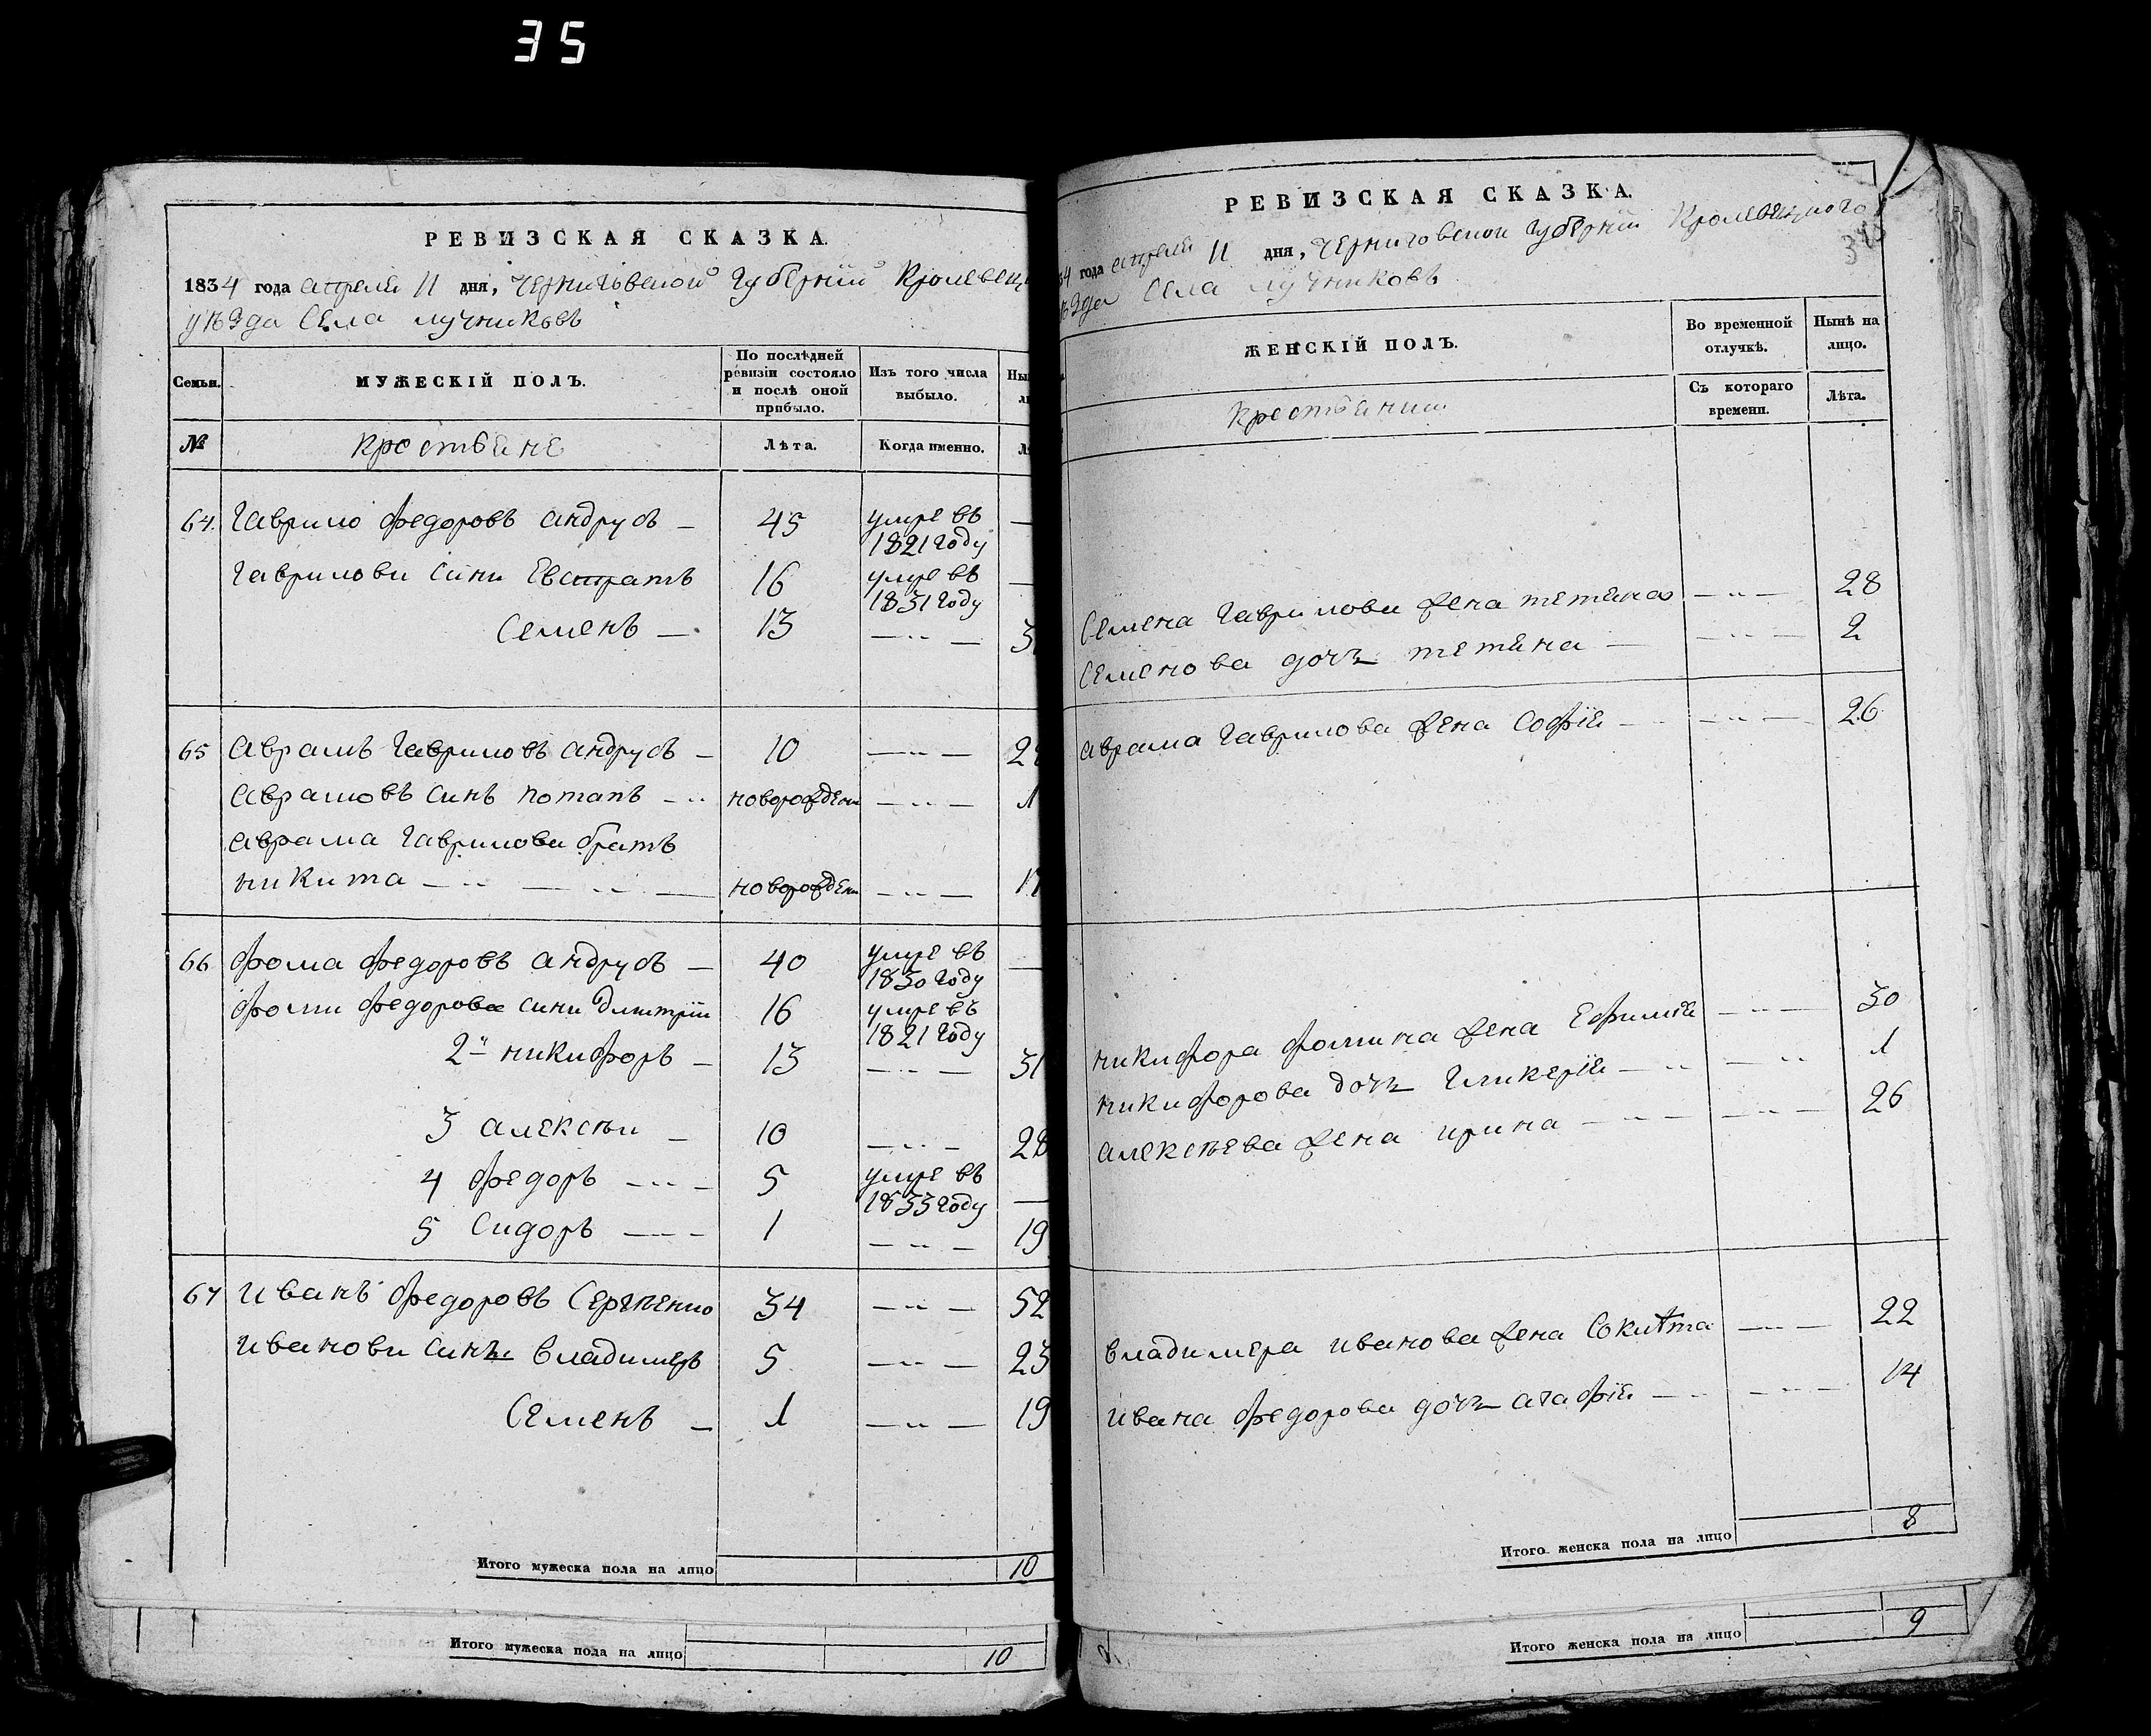 35
РЕВИЗСКАЯ СКАЗКА.
1834 года апреля 11 дня, Черниговской Губернiи Кролевец
уѣзда Села Лучниковъ
Семьи. МУЖЕСКIЙ ПОЛЪ. По послѣдней ревизiи состояло и послѣ оной прибыло. Изъ того числа выбыло.
№ крестьяне Лѣта. Когда именно.
64. Гаврило Федоровъ Андрусъ — 45 умре въ 1821 году —
Гаврилови сини Евстратъ 16 умре въ 1831 году —
Семенъ — 13 — „ — 3
65 Аврамъ Гавриловъ Андрусъ — 10 — „ — 2
Аврамовъ синъ Потапъ — „ новорожден — „ — 1
Аврама Гаврилова братъ
Никита — „ — „ — новорожден — „ — 17
66 Фома Федоровъ Андрусъ — 40 умре въ 1830 году —
Фоми Федорова сини Дмитрiй 16 умре въ 1821 году
2й Никифоръ — 13 — „ — 31
3 Алексѣй — 10 — „ — 28
4 Федоръ — „ — 5 умре въ 1833 году —
5 Сидоръ — — 1 — „ — 19
67 Иванъ Федоровъ 34 — „ — 52
Иванови сини Владимеръ 5 — „ — 23
Семенъ — 1 — „ — 19
Итого мужеска пола на лицо 10
Итого мужеска пола на лицо 10
РЕВИЗСКАЯ СКАЗКА.
34 года апреля 11 дня, Черниговской Губернiи Кролевецкого
ѣзда Села Лучниковъ
ЖЕНСКIЙ ПОЛЪ. Во временной отлучкѣ. Нынѣ на лицо.
крестьянки Съ котораго времени. Лѣта.
Семена Гаврилова жена Тетяна — „ — 28
Семенова дочь Тетяна — — „ — 2
Аврама Гаврилова жена Софiя — — „ — 26
Никифора Фомина жена Ефимiя — „ — 30
Никифорова дочь Гликерiя — „ — „ 1
Алексѣева жена Ирина — „ — — „ — 26
Владимера Иванова жена — „ — 22
Ивана Федорова дочь Агафiя — „ — „ — 14
Итого женска пола на лицо 8
Итого женска пола на лицо 9